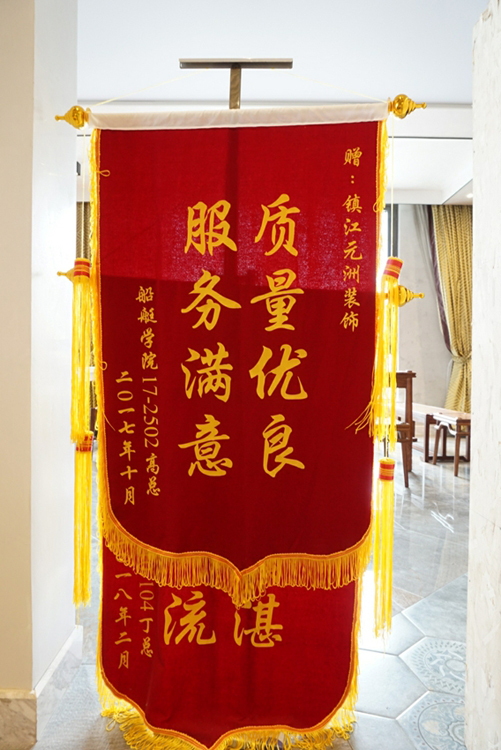 赠：镇江元洲装饰
质量优良
服务满意
船艇学院17-2502高总
二〇一七年十月
湛
流
104丁总
一八年二月